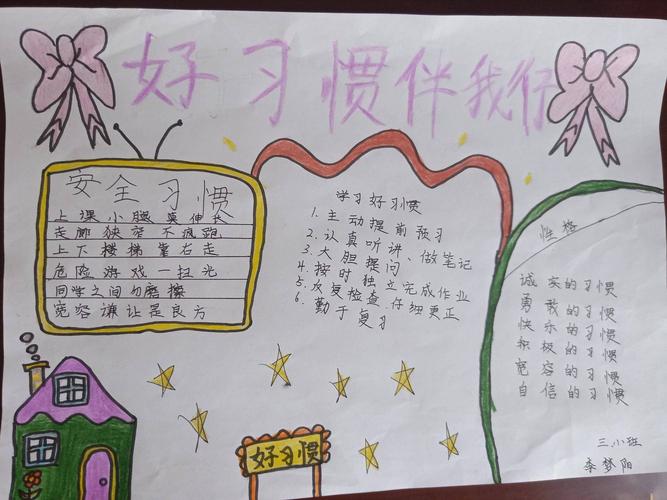 好习惯伴我行
安全习惯
上课小腿莫伸长
走廊狭窄不疯跑
上下楼梯靠右走
危险游戏一扫光
同学之间勿磨擦
宽容谦让是良方
学习好习惯
1. 主动提前预习
2. 认真听讲、做笔记
3. 大胆提问
4. 按时独立完成作业
5. 反复检查.仔细更正
6. 勤于复习
性格
诚实的习惯
勇敢的习惯
快乐的习惯
积极的习惯
宽容的习惯
自信的习惯
好习惯
三.小班
李梦阳